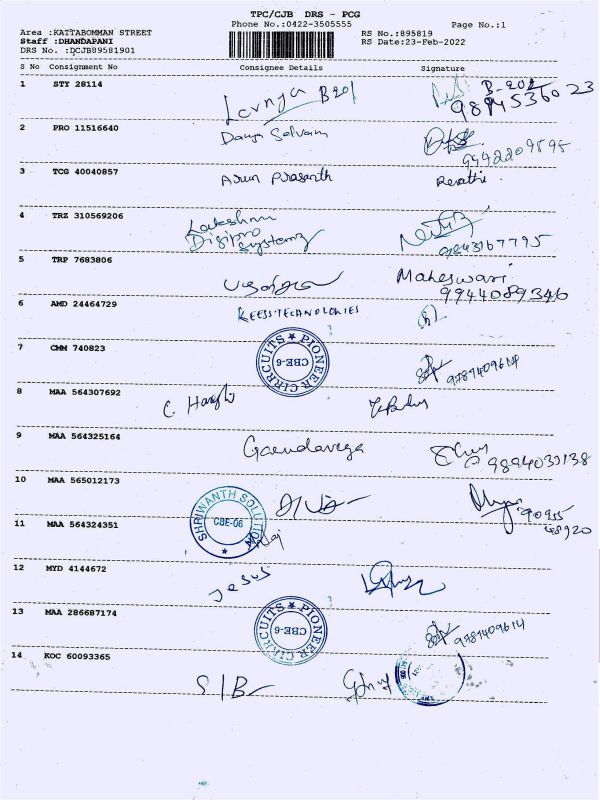 TPC/CJB DRS - PCG
Phone No.:0422-3505555 Page No.:1
Area :KATTABOMMAN STREET RS No.:895819
Staff :DHANDAPANI RS Date:23-Feb-2022
DRS No. :DCJB89581901
S No Consignment No Consignee Details Signature
1 STY 28114
Lavnya B201 B-202
2 PRO 11516640
Daya Selvam
9942209595
3 TCG 40040857
Arun Prasanth Revathi
4 TRZ 310569206
Lakshmi
Digipro
Systemz 9843167795
5 TRP 7683806
Maheswari
9944089346
6 AMD 24464729
KEESS TECHNOLOGIES
7 CMM 740823
PIONEER CIRCUITS CBE-6 9787409614
8 MAA 564307692
C.
9 MAA 564325164
9894033138
10 MAA 565012173
90955
48920
11 MAA 564324351
SHRIWANTH SOLUTION CBE-06
12 MYD 4144672
Jesus
13 MAA 286687174
PIONEER CIRCUITS CBE-6 9787409614
14 KOC 60093365
S/B